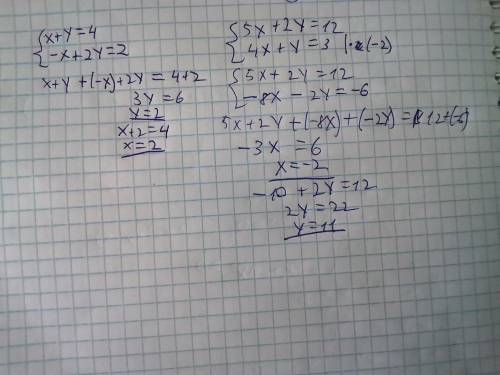 {x+y=4
{-x+2y=2
x+y+(-x)+2y=4+2
3y=6
y=2
x+2=4
x=2
{5x+2y=12
{4x+y=3 |·(-2)
{5x+2y=12
{-8x-2y=-6
5x+2y+(-8x)+(-2y)=12+(-6)
-3x=6
x=-2
-10+2y=12
2y=22
y=11